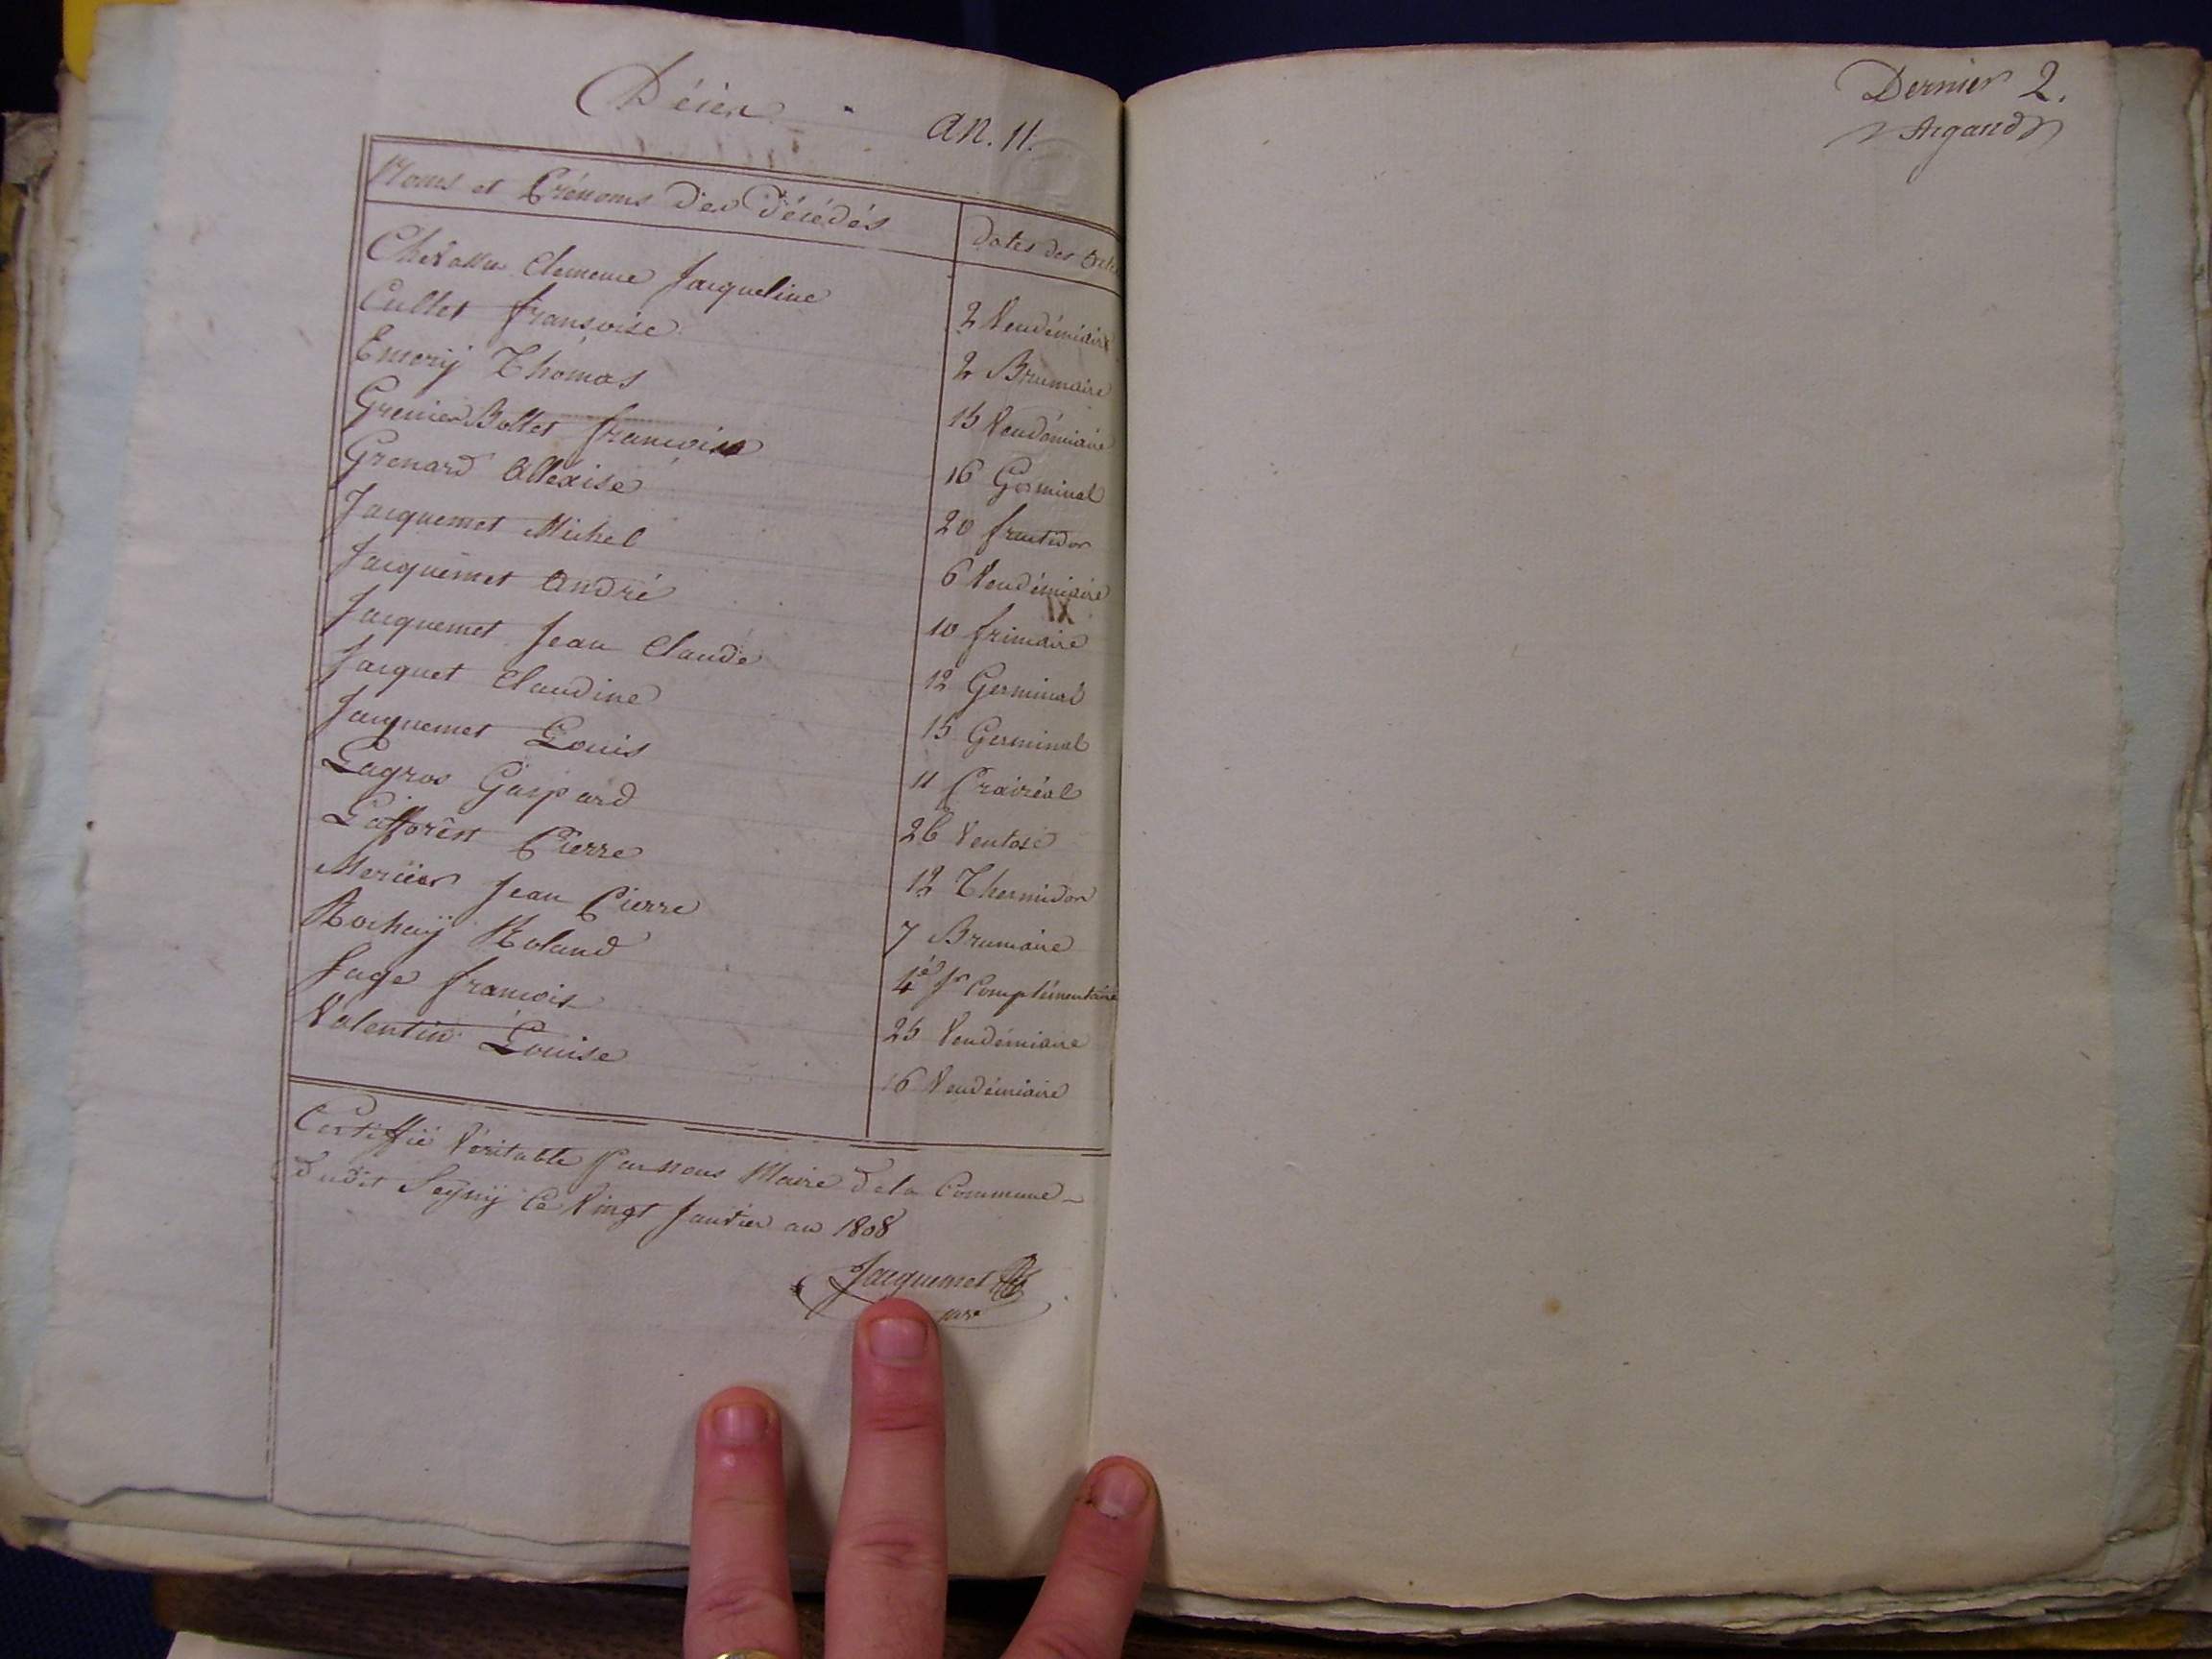 Décès
AN. 11.
Noms et Prénoms des Décédés
Dates des
Clemence Jacqueline 2 Vendémiaire
Cullet françoise 2 Brumaire
Emorij Thomas 15 Vendémiaire
Grenier Bollet francoise 16 Germinal
Grenard Alléxise 20 fructidor
Jacquemet Michel 6 Vendémiaire
Jacquemet André 10 frimaire
Jacquemet Jean Claude 12 Germinal
Jacquet Claudine 15 Germinal
Jacquemet Louis 11 Prairéal
Lagros Gaspard 26 Ventose
Lafforêst Pierre 12 Thermidor
Mercier Jean Pierre 7 Brumaire
Rochaÿ Roland 4é Jr Complémentaire
Sage francois 25 Vendémiaire
Valentin Louise 16 Vendémiaire
Certiffié Véritable Par nous Maire de la Commune
dudit Segnÿ Ce Vingt Janvier an 1808
Jacquemet
Dernier 2.
Argand